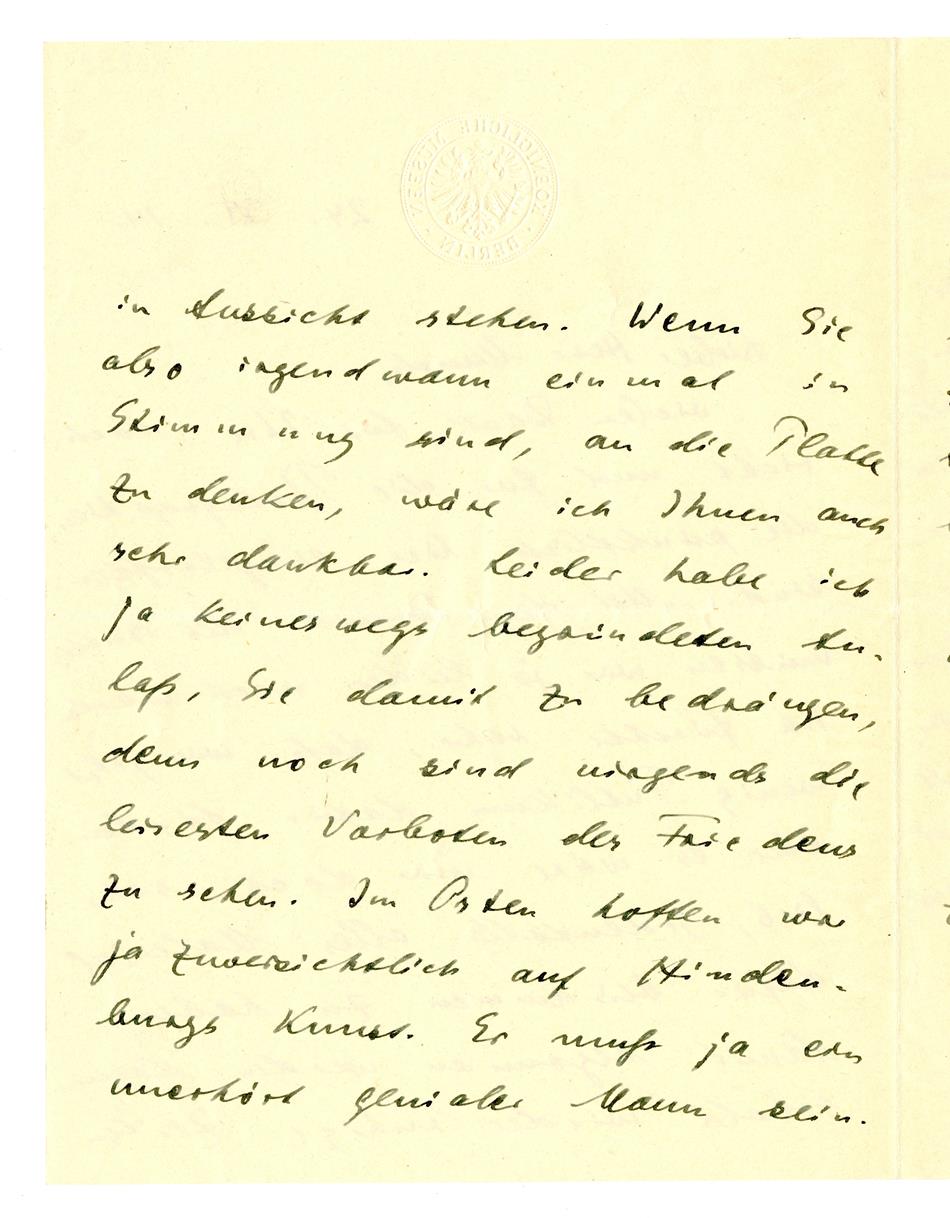 KOENIGLICHE MUSEEN
BERLIN
24. XI. 14.
in Aussicht stehen. Wenn Sie
also irgendwann einmal in
Stimmung sind, an die Platte
zu denken, wäre ich Ihnen auch
sehr dankbar. Leider habe ich
ja keineswegs begründeten An-
laß, Sie damit zu bedrängen,
denn noch sind nirgends die
leisesten Vorboten des Friedens
zu sehen. Im Osten hoffen wir
ja zuversichtlich auf Hinden-
burgs Kunst. Er muß ja ein
unerhört genialer Mann sein.